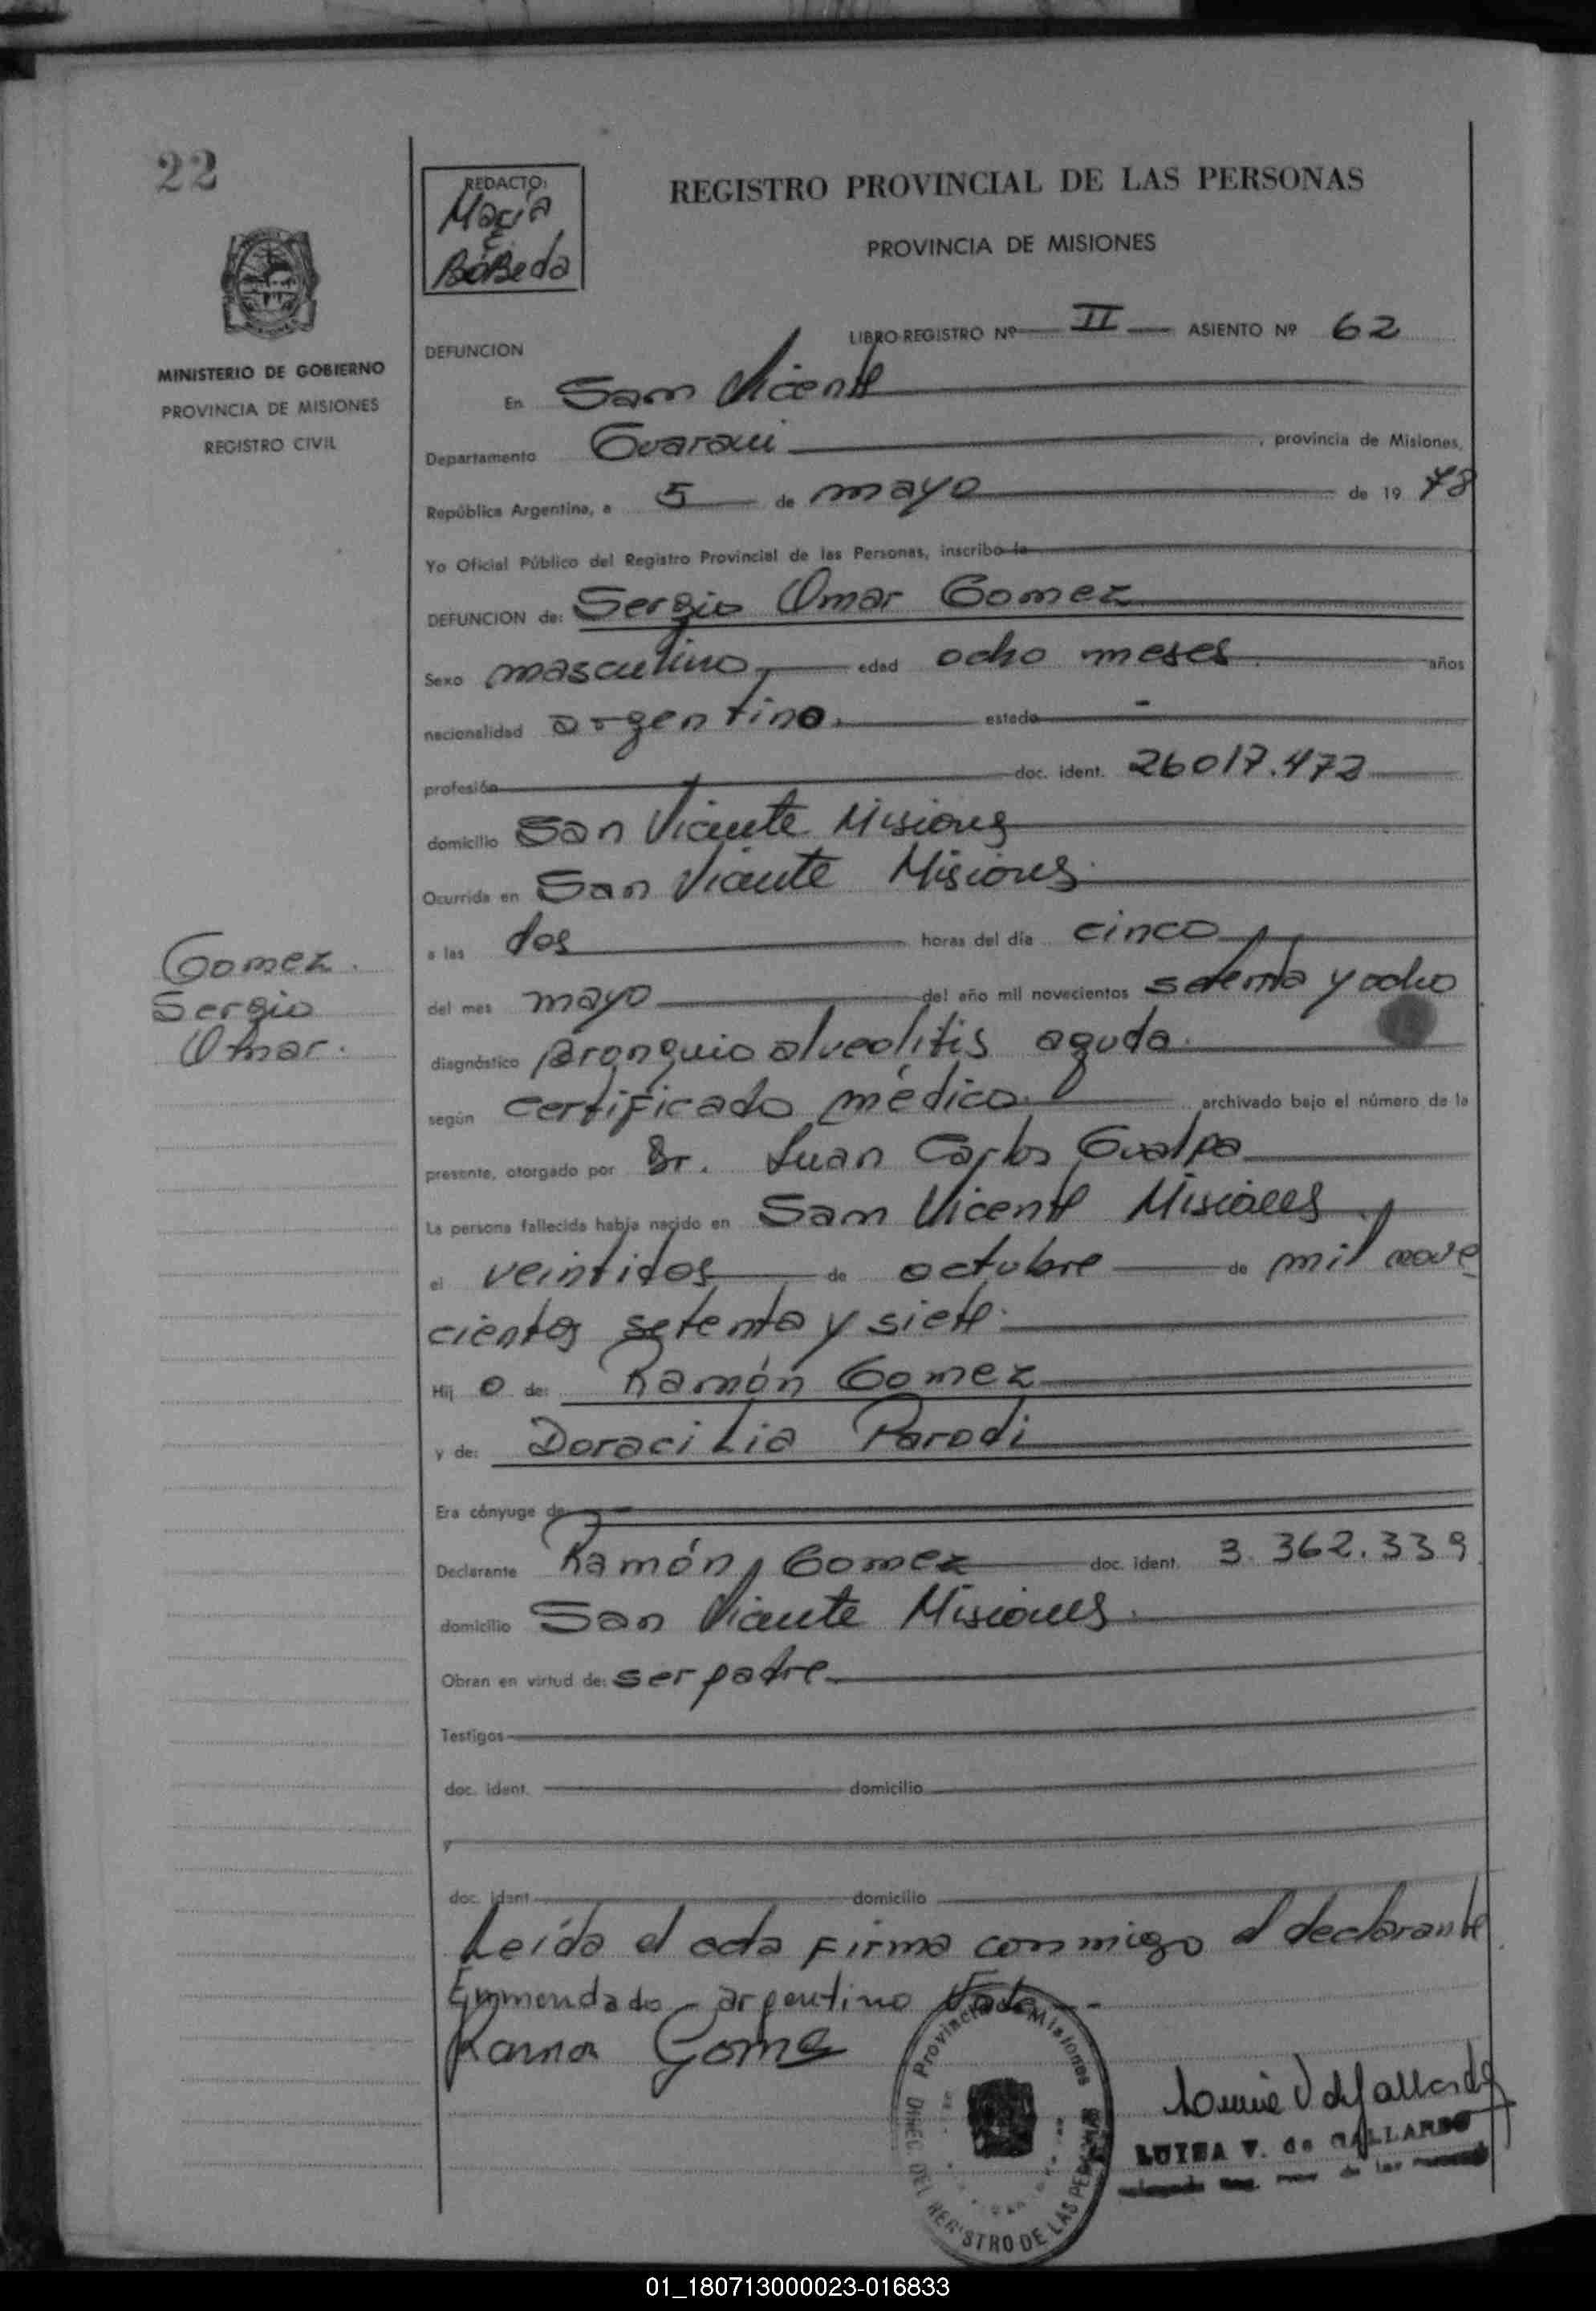 22
REDACTO:
Maria
E.
BóBeda
REGISTRO PROVINCIAL DE LAS PERSONAS
PROVINCIA DE MISIONES
MINISTERIO DE GOBIERNO
PROVINCIA DE MISIONES
REGISTRO CIVIL
LIBRO-REGISTRO Nº II ASIENTO Nº 62
DEFUNCION
En San Vicente
Departamento Guarani, provincia de Misiones,
República Argentina, a 5 de mayo de 19 78
Yo Oficial Público del Registro Provincial de las Personas, inscribo la
DEFUNCION de: Sergio Omar Gomez
Sexo masculino edad ocho meses años
nacionalidad argentino. estado -
profesión doc. ident. 26017.472
domicilio San Vicente Misiones
Ocurrida en San Vicente Misiones.
a las dos horas del día cinco
del mes mayo del año mil novecientos setenta y ocho
Gomez.
Sergio
Omar.
diagnóstico Bronquio alveolitis aguda.
según certificado médico. archivado bajo el número de la
presente, otorgado por Dr. Juan Carlos Gualpa
La persona fallecida había nacido en San Vicente Misiones
el veintidos de octubre de mil nove
cientos setenta y siete.
Hij o de: Ramón Gomez
y de: Doracilia Parodi
Era cónyuge de
Declarante Ramón Gomez doc. ident. 3.362.339
domicilio San Vicente Misiones.
Obran en virtud de: ser padre
Testigos
doc. ident. domicilio
y
doc. ident. domicilio
Leída el acta firma conmigo el declarante
Enmendado - argentino Vale -
Ramon Gome
Provincia de Misiones
DIREC. DEL REGISTRO DE LAS PERSONAS
LUISA V. de GALLARDO
01_180713000023-016833